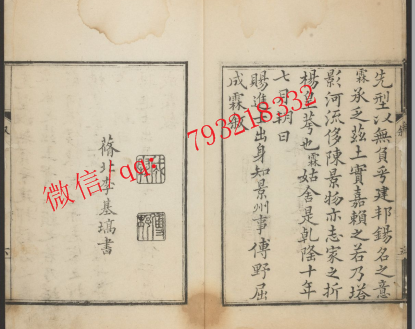 先型以無負乎建邦錫名之意
霖承乏茲土實嘉賴之若乃塔
影河流侈陳景物亦志家之折
楊皇荂也霖姑舍是乾隆十年
七月朔日
賜進士出身知景州事傅野屈
成霖敘
蓨北李基塙書
微信 qq: 793218332